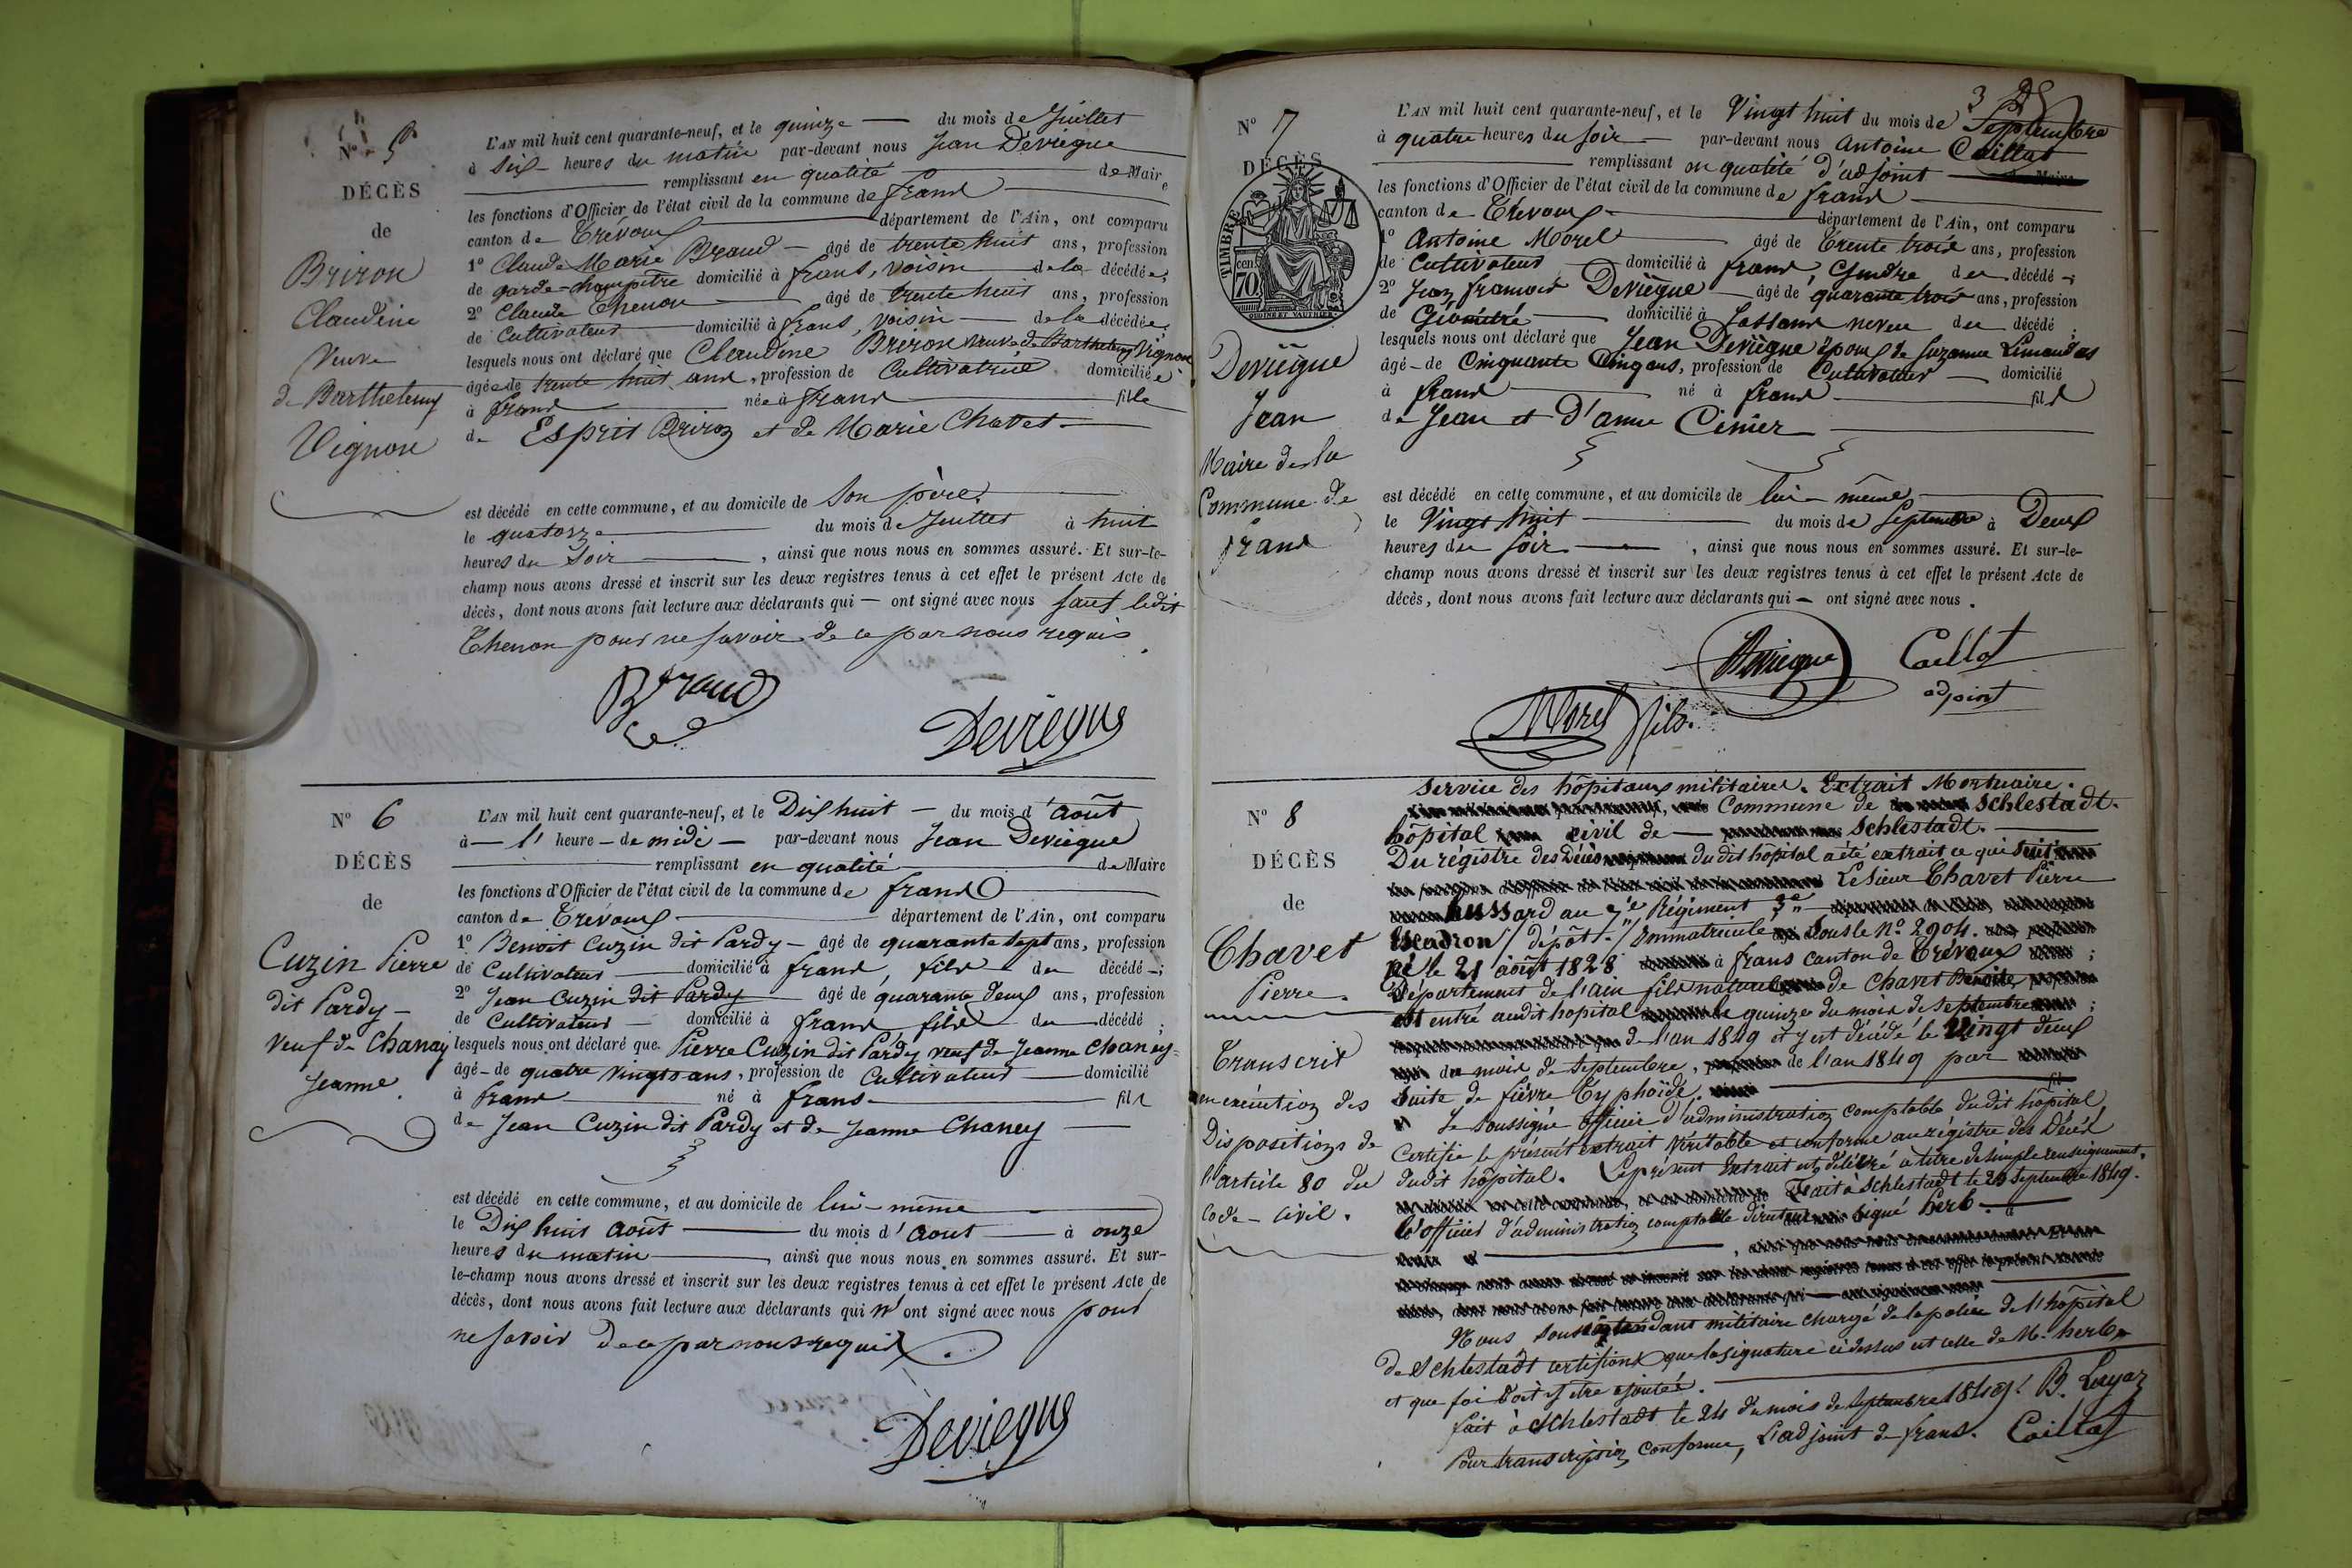 Nº 5
DÉCÈS
de
Briron
Claudine
Veuve
de Barthelemy
Vignon
L'AN mil huit cent quarante-neuf, et le quinze — du mois de Juillet
à six heures du matin par-devant nous Jean Deviègue
remplissant en qualité de Maire
les fonctions d'Officier de l'état civil de la commune de frans
canton de Trévoux département de l'Ain, ont comparu
1º Claude Marie Braud — âgé de trente huit ans, profession
de garde-champêtre domicilié à frans, voisin de la décédée,
2º Claude Thenon âgé de trente huit ans, profession
de Cultivateur domicilié à frans, voisin de la décédée,
lesquels nous ont déclaré que Claudine Briron veuve de Barthelemy Vignon
âgée de trente huit ans, profession de Cultivatrice domiciliée
à frans née à frans fille
de Esprit Briron et de Marie Chavet
est décédé en cette commune, et au domicile de Son père,
le quatorze du mois de Juillet à huit
heures du soir , ainsi que nous nous en sommes assuré. Et sur-le-
champ nous avons dressé et inscrit sur les deux registres tenus à cet effet le présent Acte de
décès, dont nous avons fait lecture aux déclarants qui — ont signé avec nous sauf ledit
Thenon pour ne savoir de ce par nous requis.
Braud
Deviegue
Nº 6
DÉCÈS
de
Cuzin Pierre
dit Pardy —
veuf de Chanay
Jeanne.
L'AN mil huit cent quarante-neuf, et le Dix huit — du mois d'août
à — l' heure — de midi — par-devant nous Jean Deviegue
remplissant en qualité de Maire
les fonctions d'Officier de l'état civil de la commune de frans
canton de Trévoux département de l'Ain, ont comparu
1º Benoit Cuzin dit Pardy — âgé de quarante sept ans, profession
de Cultivateur domicilié à frans, fils du décédé —;
2º Jean Cuzin dit Pardy âgé de quarante deux ans, profession
de Cultivateur — domicilié à frans, fils du décédé ;
lesquels nous ont déclaré que Pierre Cuzin dit Pardy veuf de Jeanne Chaney
âgé — de quatre vingts ans, profession de Cultivateur domicilié
à frans né à frans fils
de Jean Cuzin dit Pardy et de Jeanne Chaney
est décédé en cette commune, et au domicile de lui-même
le Dix huit août du mois d'août à onze
heures du matin ainsi que nous nous en sommes assuré. Et sur-
le-champ nous avons dressé et inscrit sur les deux registres tenus à cet effet le présent Acte de
décès, dont nous avons fait lecture aux déclarants qui n'ont signé avec nous pour
ne savoir de ce par nous requis.
Deviegue
3
Nº 7
DÉCÈS
TIMBRE
70
Deviègue
Jean
Maire de la
Commune de
frans
L'AN mil huit cent quarante-neuf, et le Vingt huit du mois de Septembre
à quatre heures du soir par-devant nous Antoine Caillat
remplissant en qualité d'adjoint
les fonctions d'Officier de l'état civil de la commune de frans
canton de Trévoux département de l'Ain, ont comparu
1º Antoine Morel âgé de Trente trois ans, profession
de Cultivateur domicilié à frans, Gendre du décédé —;
2º Jean francois Deviègue — âgé de quarante trois ans, profession
de Géomètre domicilié à Jassans neveu du décédé ;
lesquels nous ont déclaré que Jean Deviègue époux de Suzanne Limandas
âgé — de Cinquante Cinq ans, profession de Cultivateur domicilié
à frans né à frans fils
de Jean et d'anne Cinier
est décédé en cette commune, et au domicile de lui-même,
le Vingt huit du mois de Septembre à Deux
heures du soir , ainsi que nous nous en sommes assuré. Et sur-le-
champ nous avons dressé et inscrit sur les deux registres tenus à cet effet le présent Acte de
décès, dont nous avons fait lecture aux déclarants qui — ont signé avec nous.
Deviegue
Caillat
adjoint
Morel fils.
Nº 8
DÉCÈS
de
Chavet
Pierre.
Transcrit
en exécution des
Dispositions de
l'article 80 du
Code — Civil.
Service des hôpitaux militaires. Extrait Mortuaire.
Commune de Schlestadt.
hôpital civil de — Schlestadt.
Du régistre des Décès du dit hôpital a été extrait ce qui suit
Le Sieur Chavet Pierre
hussard au 7e Régiment 3e
Escadron / dépôt / Immatricule sous le Nº 2904.
né le 21 août 1828 à frans canton de Trévoux
Département de l'ain fils naturel de Chavet Benoite,
est entré audit hopital le quinze du mois de Septembre
de l'an 1849 et y est décédé le Vingt deux
du mois de Septembre, de l'an 1849 par
suite de fièvre Typhoïde.
Je soussigné officier d'administration comptable dudit hôpital
Certifie le présent extrait véritable et conforme au régistre des Décès
dudit hôpital. Le présent Extrait est délivré à titre de simple renseignement.
Fait à Schlestadt le 23 Septembre 1849.
l'officier d'administration comptable Signé herb.
Nous Sous intendant militaire chargé de la police de l'hôpital
de Schlestadt certifions que la signature ci dessus est celle de M. herb
et que foi doit y être ajoutée.
fait à Schlestadt le 24 du mois de Septembre 1849.
Pour transcription conforme, L'adjoint de frans. Caillat